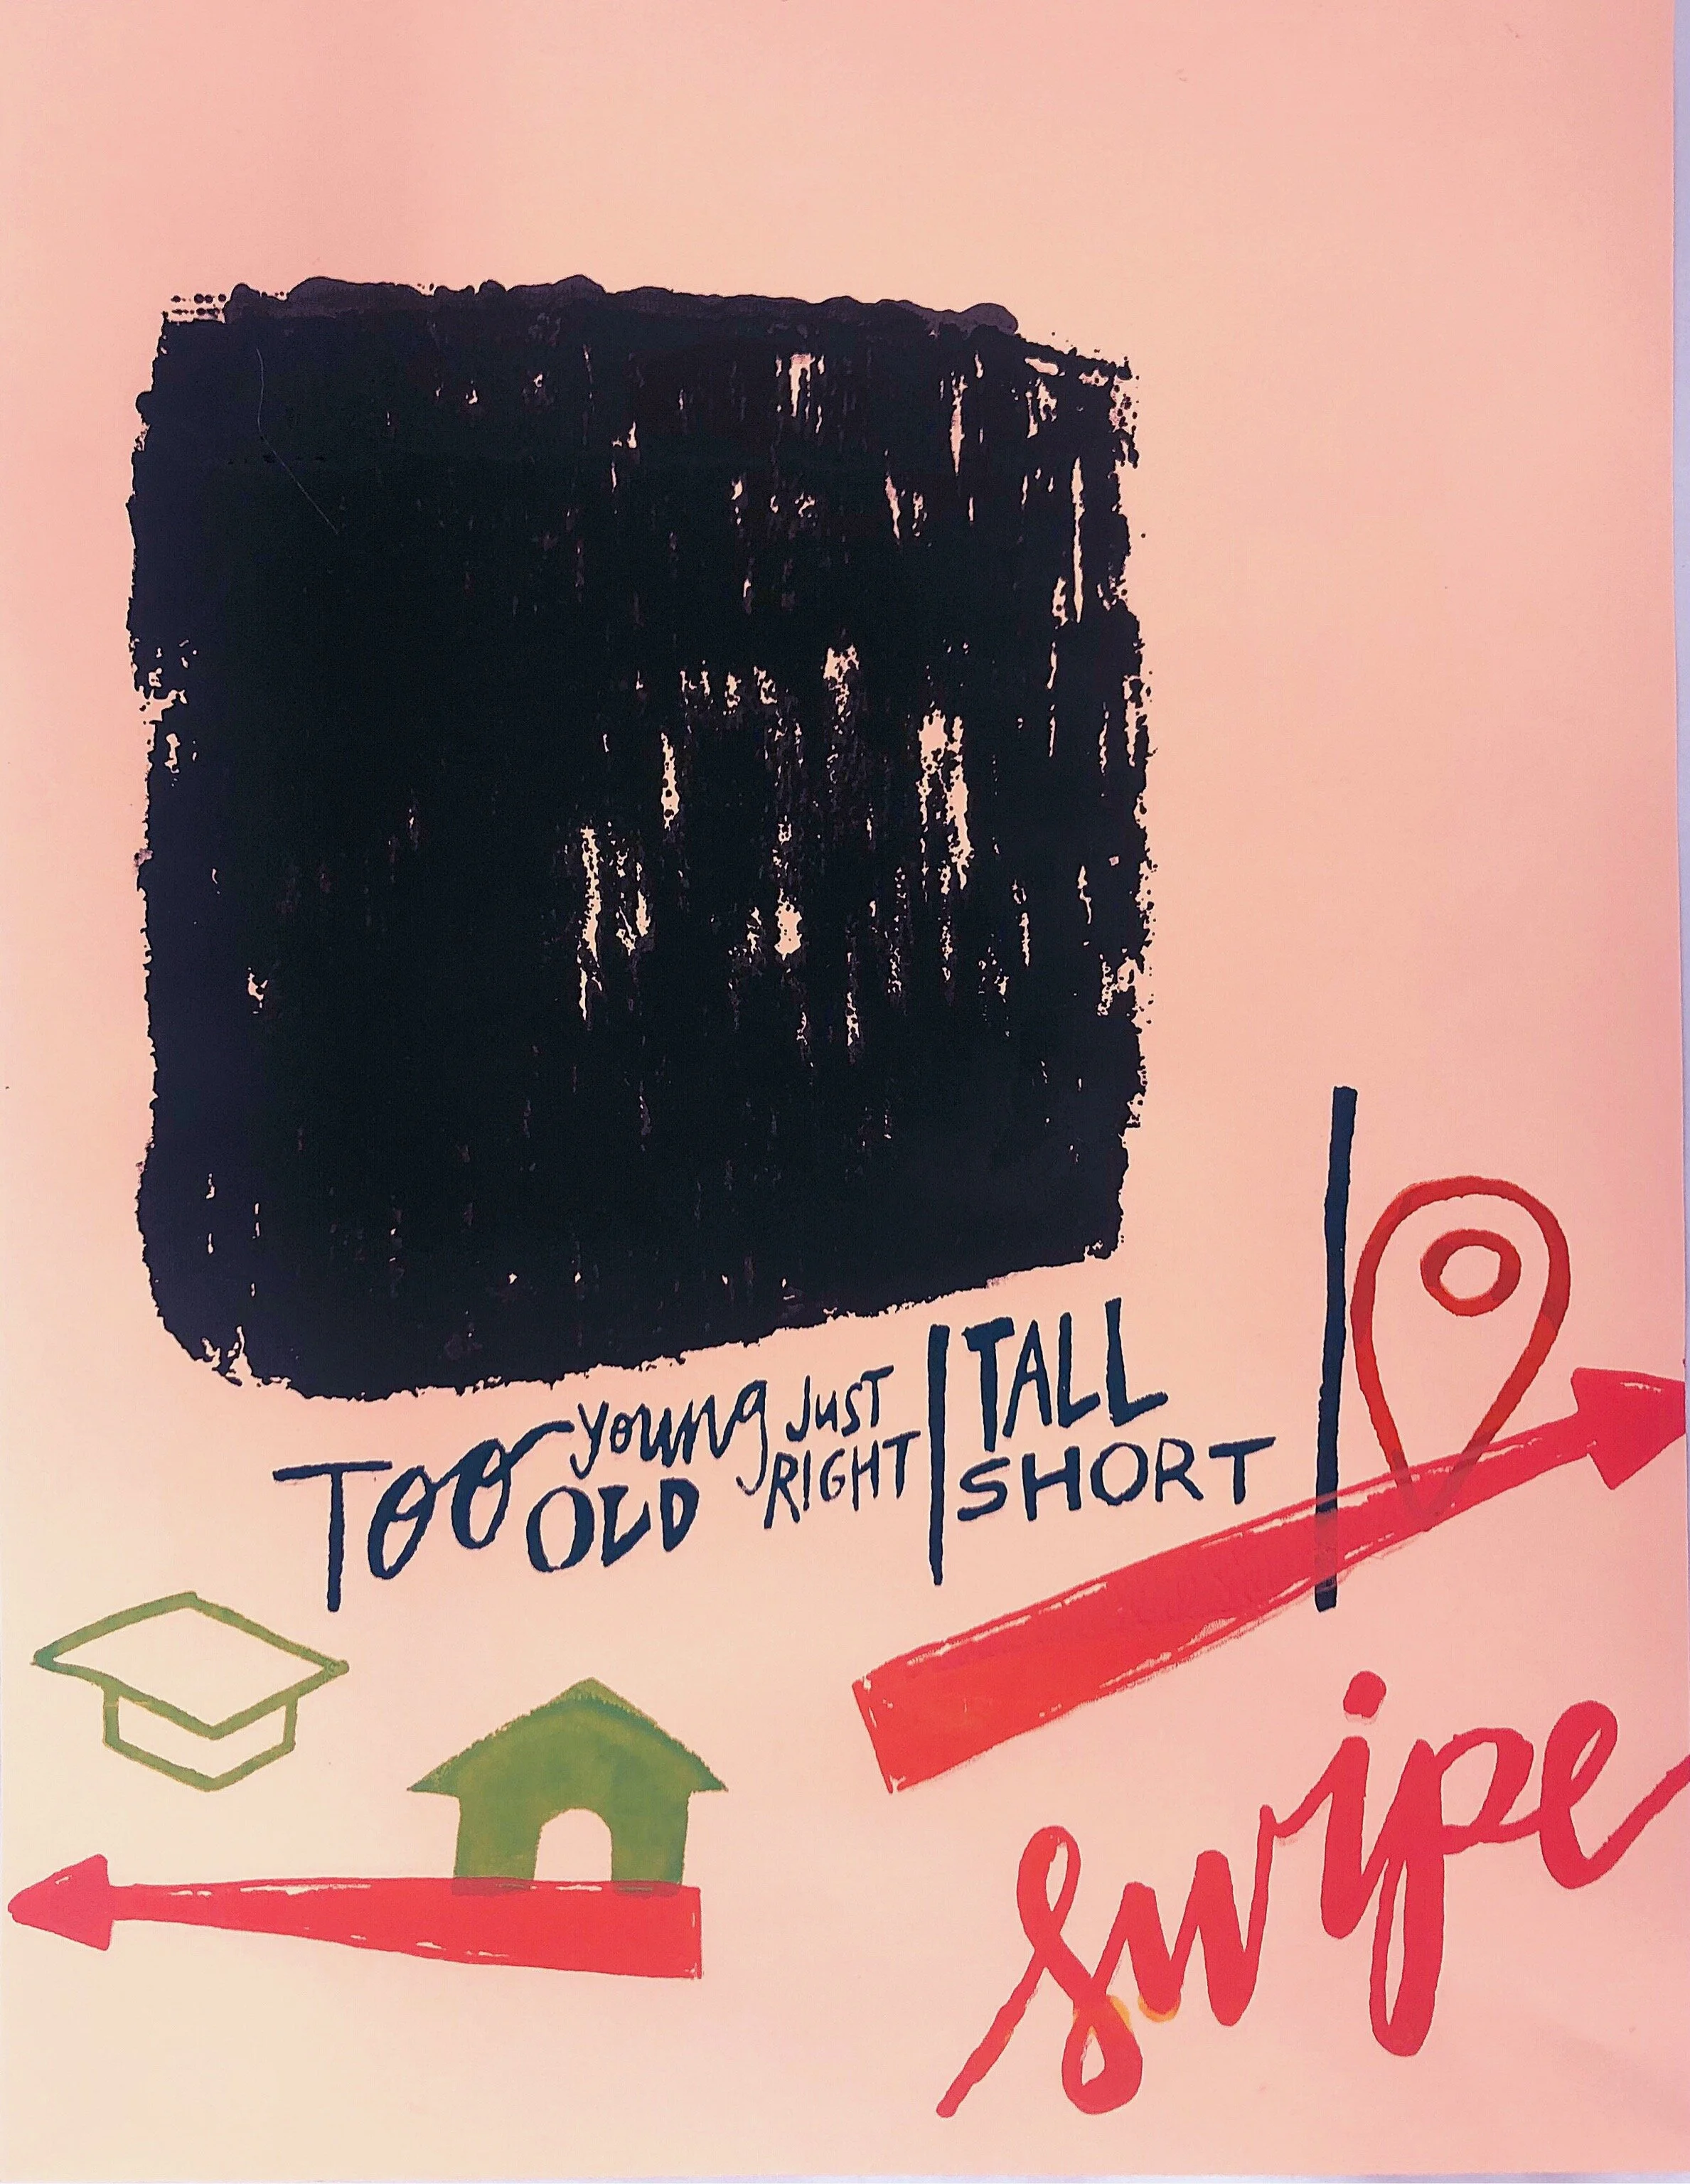 TOO young JUST | TALL
OLD RIGHT | SHORT |
swipe